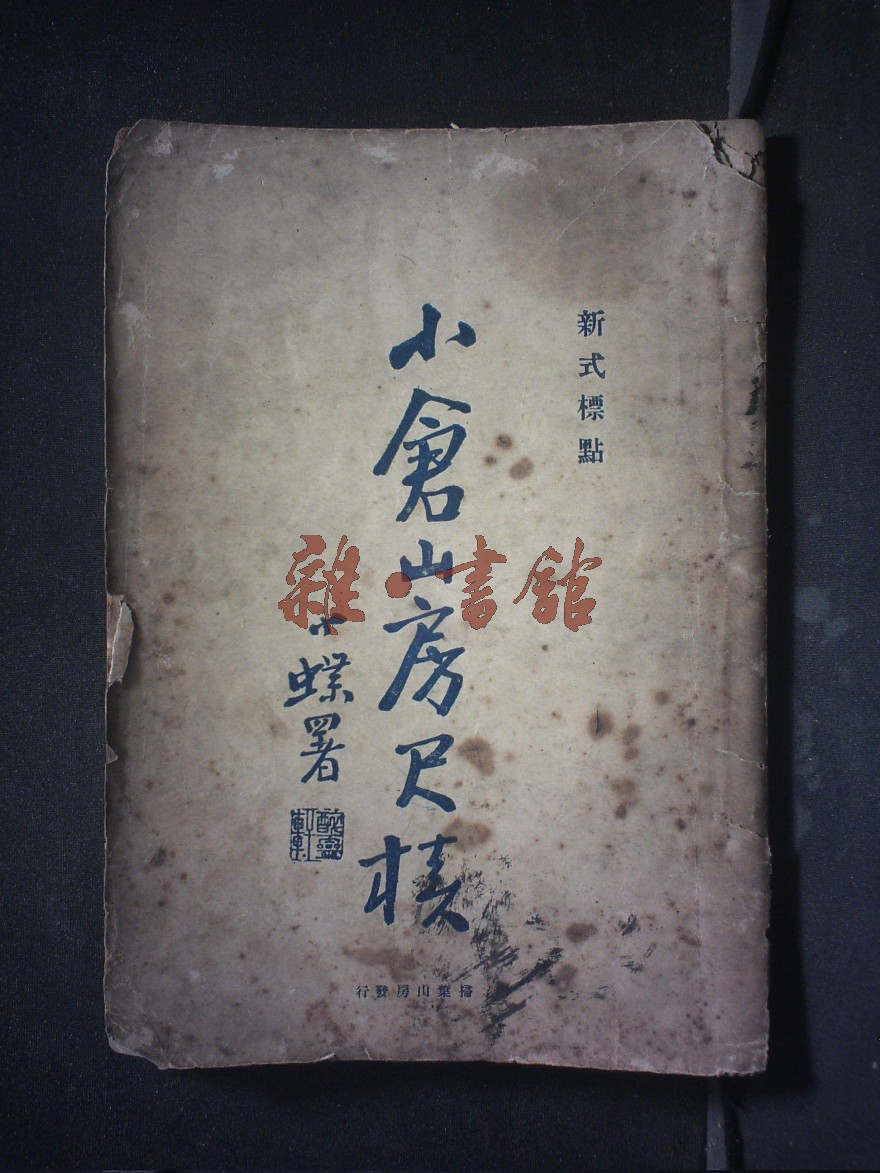 新式標點
小倉山房尺牘
小蝶署
醉靈軒
掃葉山房發行
雜·書館